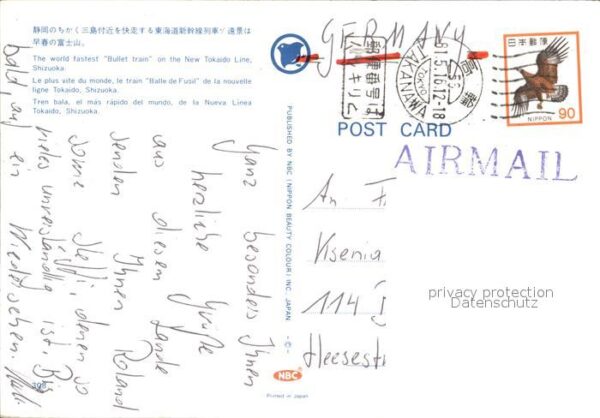 静岡のちかく三島付近を快走する東海道新幹線列車で遠景は
早春の富士山。
The world fastest "Bullet train" on the New Tokaido Line,
Shizuoka.
Le plus site du monde, le train "Balle de Fusil" de la nouvelle
ligne Tokaido, Shizuoka.
Tren bala, el más rápido del mundo, de la Nueva Línea
Tokaido, Shizuoka.
Ganz besonders Ihnen
herzliche Grüße
aus diesem Lande
senden Ihnen Roland
sowie Steffi, denen so
vieles unverständlig ist. Bis
bald, auf ein Wiedersehen.
308
PUBLISHED BY NBC (NIPPON BEAUTY COLOUR) INC. JAPAN
NBC
Printed in Japan
GERMANY
郵便番号は
ハッキリと
TAKANAWA
TOKYO
61.5.16.12-18
高輪
日本郵便
NIPPON
90
POST CARD
AIRMAIL
An F
Ksenia
114
Heesest
privacy protection
Datenschutz